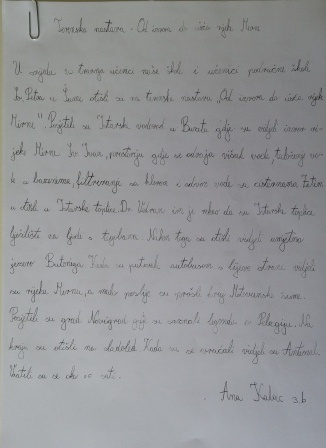 Terenska nastava - Od izvora do ušća rijeke Mirne
U srijedu 2. travnja učenici naše škole i učenici područne škole
Sv. Petra u Šumi otišli su na terensku nastavu „Od izvora do ušća rijeke
Mirne". Posjetili su Istarski vodovod u Buzetu gdje su vidjeli izvor ri-
jeke Mirne Sv. Ivan, prostoriju gdje se odvaja višak vode, taloženje vo-
de u bazenima, filtriranje sa klorom i odvoz vode sa cisternama. Zatim
su otišli u Istarske toplice. Dr. Vedran im je rekao da su Istarske toplice
lječilište za ljude s Nakon toga su otišli vidjeti umjetno
jezero Butoniga. Kada su putovali autobusom s lijeve strane vidjeli
su rijeku Mirnu, a malo poslije su prošli kraj Motovunske šume.
Posjetili su grad Novigrad gdje su saznali legendu o Pelagiju. Na
kraju su otišli na sladoled. Kada su se vraćali vidjeli su Antenal.
Vratili su se oko sati.
Ana 3.b